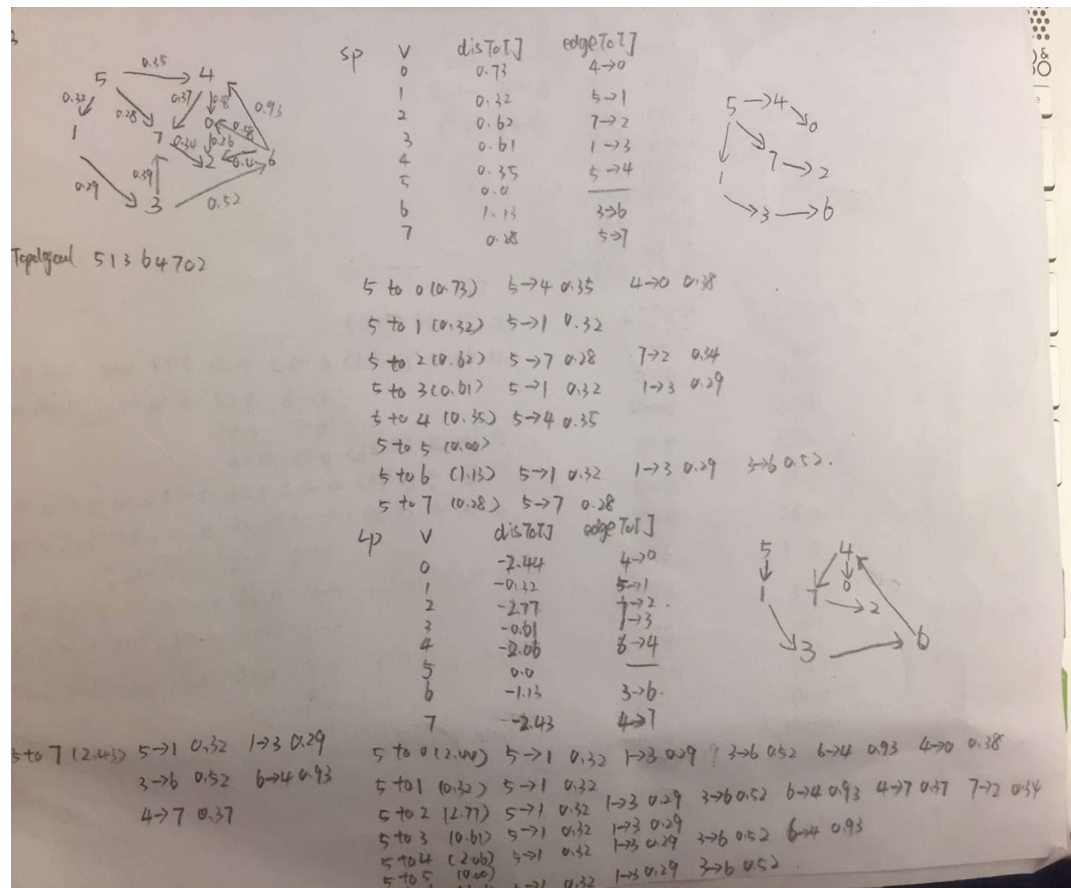 5 0.35 4
0.32 0.28 0.37 0.93
1 7 0 0.26
0.34 2 6
0.29 0.39
3 0.52
Topological 51364702
sp v disTo[] edgeTo[]
0 0.73 4→0
1 0.32 5→1
2 0.62 7→2
3 0.61 1→3
4 0.35 5→4
5 0.0 —
6 1.13 3→6
7 0.28 5→7
5→4
0
7→2
1
3→6
5 to 0 (0.73) 5→4 0.35 4→0 0.38
5 to 1 (0.32) 5→1 0.32
5 to 2 (0.62) 5→7 0.28 7→2 0.34
5 to 3 (0.61) 5→1 0.32 1→3 0.29
5 to 4 (0.35) 5→4 0.35
5 to 5 (0.00)
5 to 6 (1.13) 5→1 0.32 1→3 0.29 3→6 0.52.
5 to 7 (0.28) 5→7 0.28
Lp v disTo[] edgeTo[]
0 -2.44 4→0
1 -0.32 5→1
2 -2.77 7→2.
3 -0.61 1→3
4 -2.06 6→4
5 0.0 —
6 -1.13 3→6.
7 -2.43 4→7
5 4
1 7 0
2
3 6
5 to 7 (2.43) 5→1 0.32 1→3 0.29
3→6 0.52 6→4 0.93
4→7 0.37
5 to 0 5→1 0.32 1→3 0.29 3→6 0.52 6→4 0.93 4→0 0.38
5 to 1 (0.32) 5→1 0.32
5 to 2 (2.77) 5→1 0.32 1→3 0.29 3→6 0.52 6→4 0.93 4→7 0.37 7→2 0.34
5 to 3 (0.61) 5→1 0.32 1→3 0.29
5 to 4 (2.06) 5→1 0.32 1→3 0.29 3→6 0.52 6→4 0.93
5 to 5 (0.00)
0.32 1→3 0.29 3→6 0.52.